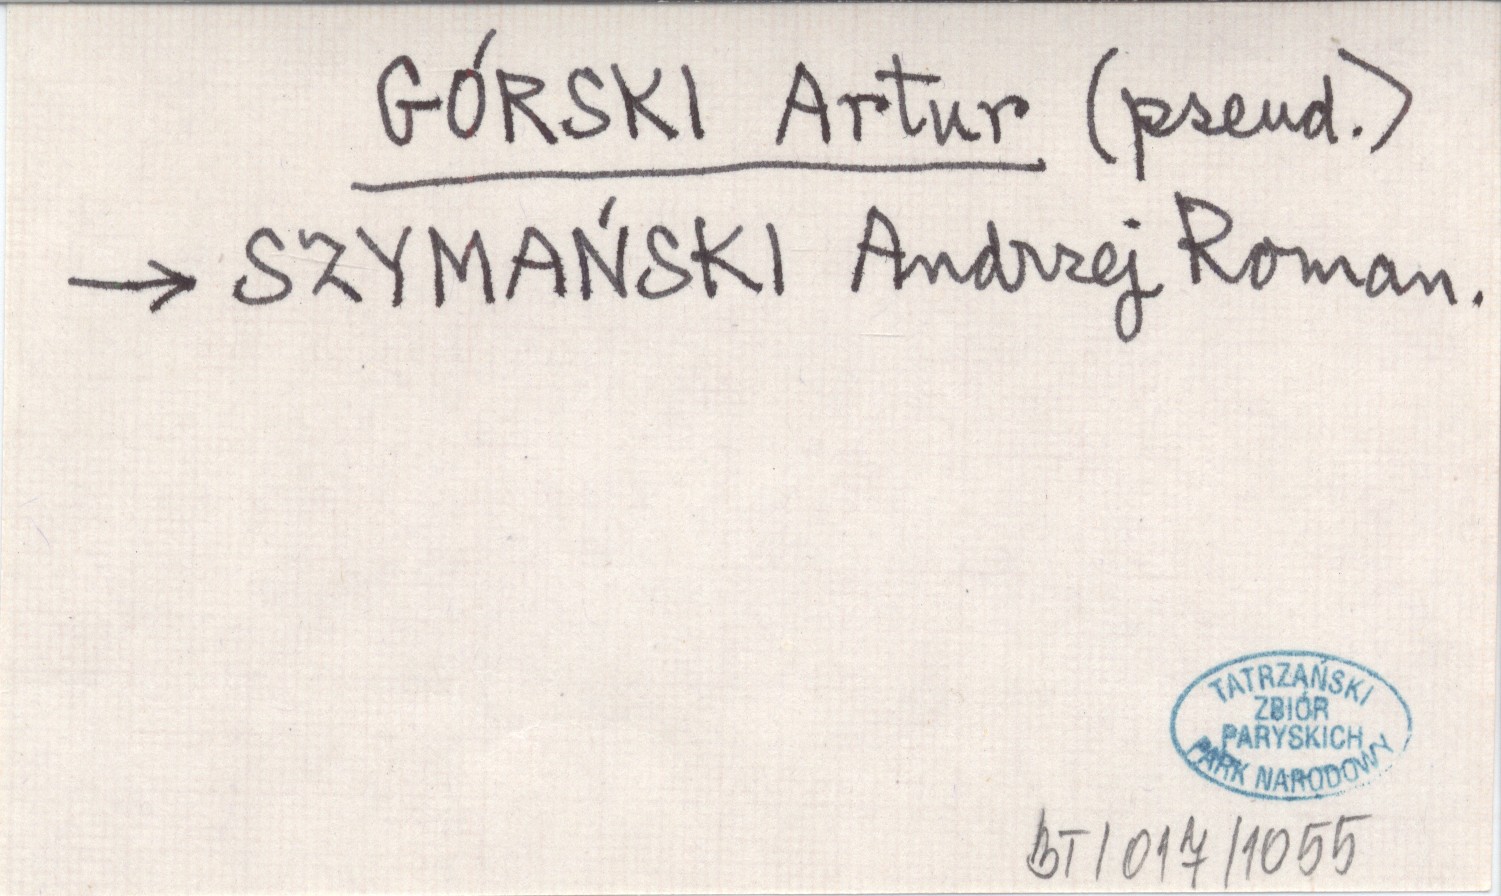 GÓRSKI Artur (pseud.)
→ SZYMAŃSKI Andrzej Roman.
TATRZAŃSKI
ZBIÓR
PARYSKICH
PARK NARODOWY
BT/017/1055